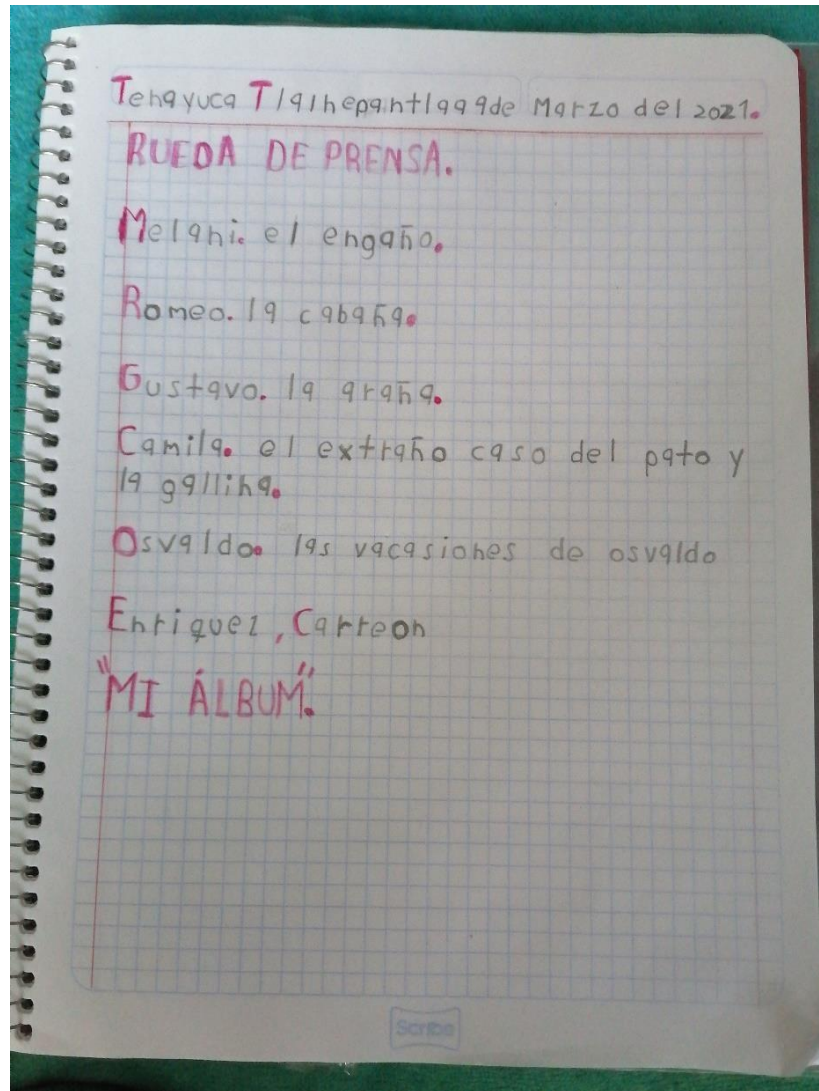 Tenayuca Tlalnepantla a 9 de Marzo del 2021.
RUEDA DE PRENSA.
Melani. el engaño.
Romeo. la cabaña.
Gustavo. la araña.
Camila. el extraño caso del pato y
la gallina.
Osvaldo. las vacasiones de osvaldo
Enriquez, Carreon
"MI ÁLBUM".
Scribe